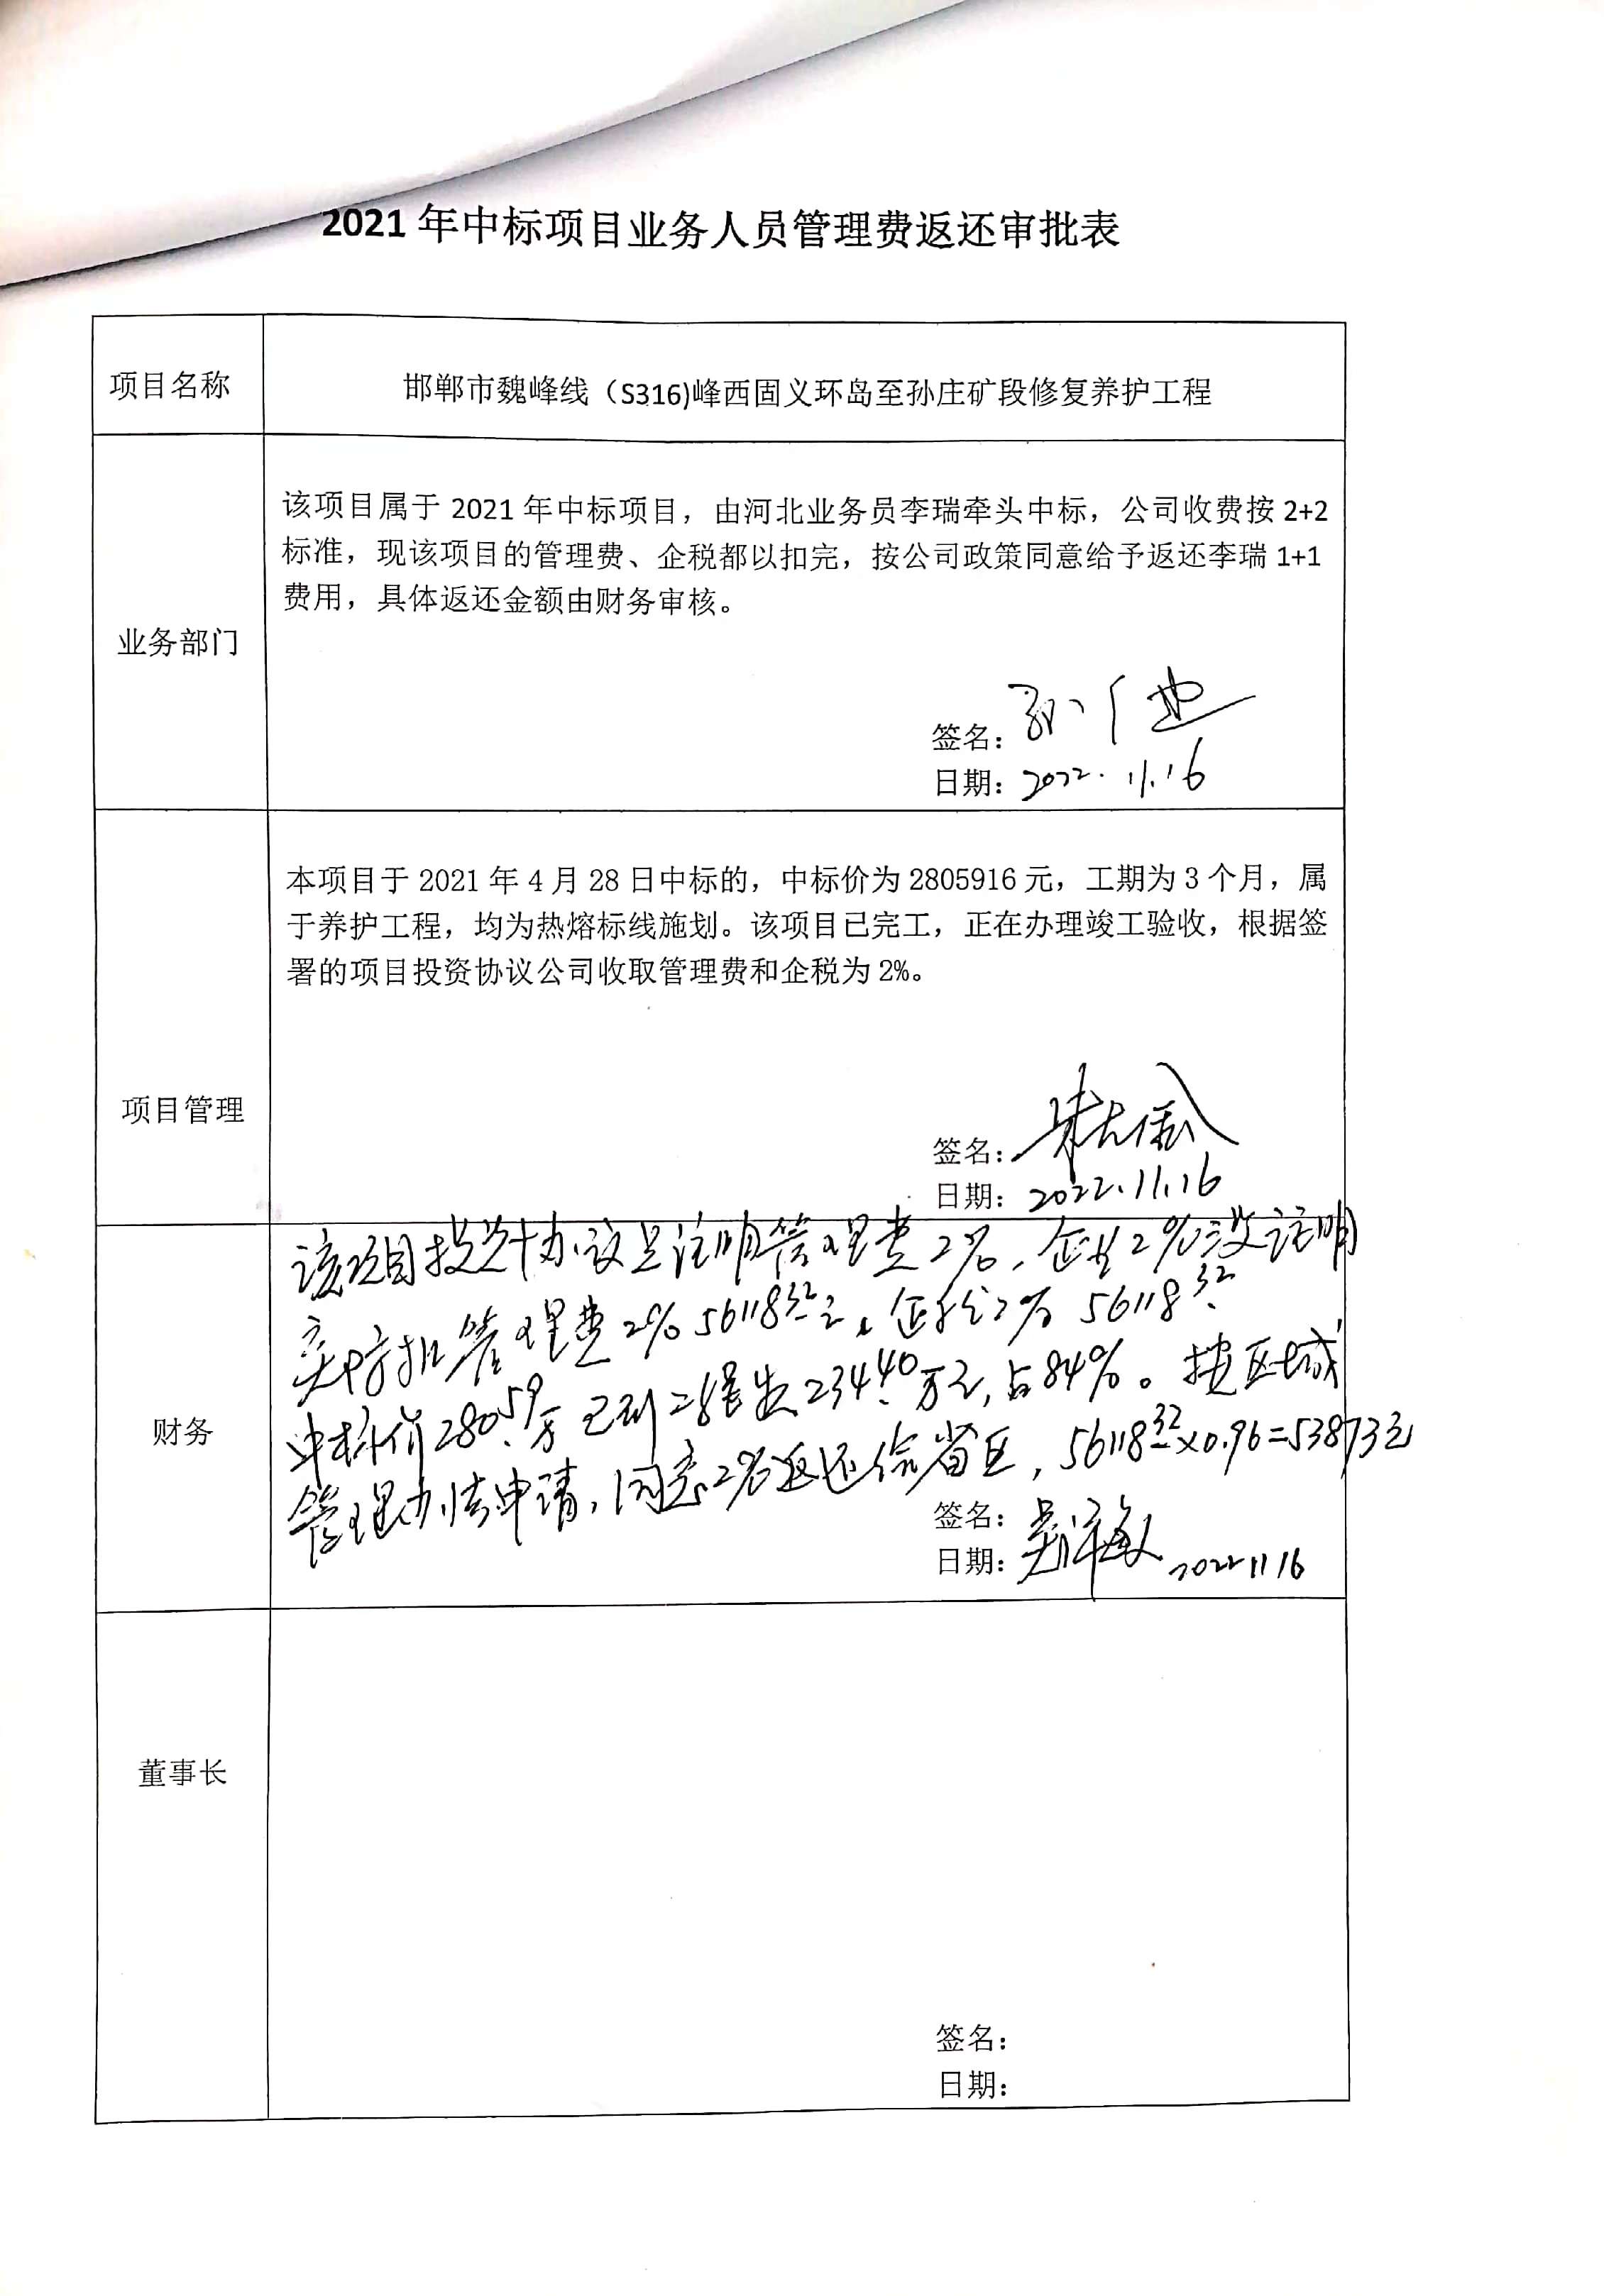 2021 年中标项目业务人员管理费返还审批表
项目名称
邯郸市魏峰线（S316)峰西固义环岛至孙庄矿段修复养护工程
业务部门
该项目属于 2021 年中标项目，由河北业务员李瑞牵头中标，公司收费按 2+2
标准，现该项目的管理费、企税都以扣完，按公司政策同意给予返还李瑞 1+1
费用，具体返还金额由财务审核。
签名：
日期：2022.11.16
项目管理
本项目于 2021 年 4 月 28 日中标的，中标价为 2805916 元，工期为 3 个月，属
于养护工程，均为热熔标线施划。该项目已完工，正在办理竣工验收，根据签
署的项目投资协议公司收取管理费和企税为 2%。
签名：
日期：2022.11.16
财务
该项目投资协议只注明管理费2%，企业2%没注明
实际扣管理费2% 56118.32元，企税2% 56118.32
中标价280.59万 已到 234.40万元，占84%。按区域
管理办法申请，同意2%返还给省区，56118.32×0.96=53873元
签名：
日期：2022 11 16
董事长
签名：
日期：